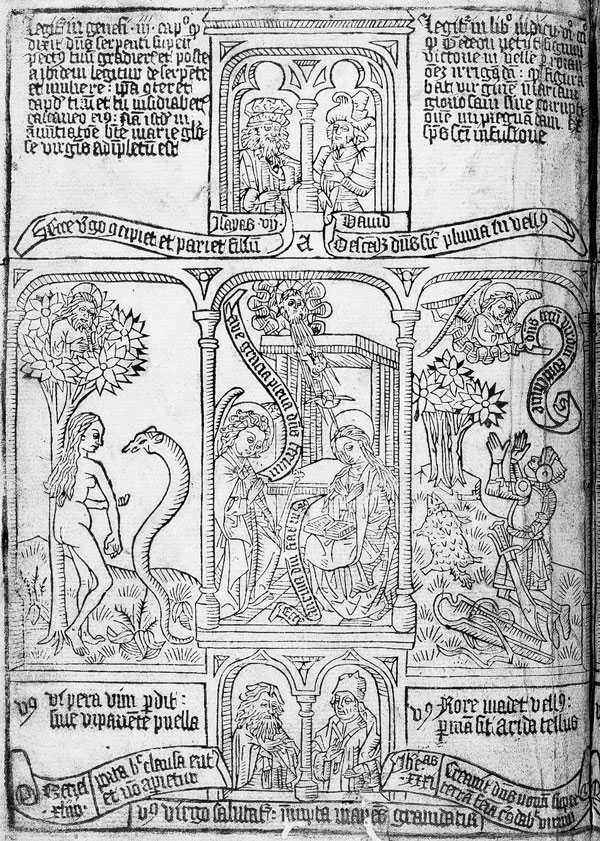 Legit̄ in genesi · iii · cap° q̄
dixit dn̄s serpenti super
pectus tuū gradieris et poste
a ibidem legitur de serpēte
et muliere : ipa cōteret
caput tuū et tu insidiaber̄
calcaneo ei⁹ : Nā istud in
annūtiatōe bt̄e marie glo
se virginis adīpletū est
Legit̄ in lib° iudicū · vi° c°
q̄ Gedeon petijt signum
victorie in vellere p̄ pluuiā
irrigādū : qd̄ figura
bat virginē mariam
gloriosam sine corrupt
ione impregnādam Ex
sp̄s sc̄ti infusione
Isayas vij
Dauid
Ecce v̄go cōcipiet et pariet filiū
a
Descēdet dn̄s sic̄ pluuia in vell⁹
Aue gracia plena dn̄s tecū
Ecce ancilla dn̄i fiat mi
Dn̄s tecū viroꝝ fortissime
v⁹ Vipera vim p̄dit :
sine vi pariēte puella
v⁹ Rore madet vell⁹ :
p̄māsit arida tellus
Ezechiel
xliiij°
Porta h̄ clausa erit
et nō apietur
Iheᵃˢ
xxxi
Creauit dn̄s nouū super
terrā femīa c̄cūdabit virum
v⁹ Virgo salutat̄ : innupta manēs grauidatur